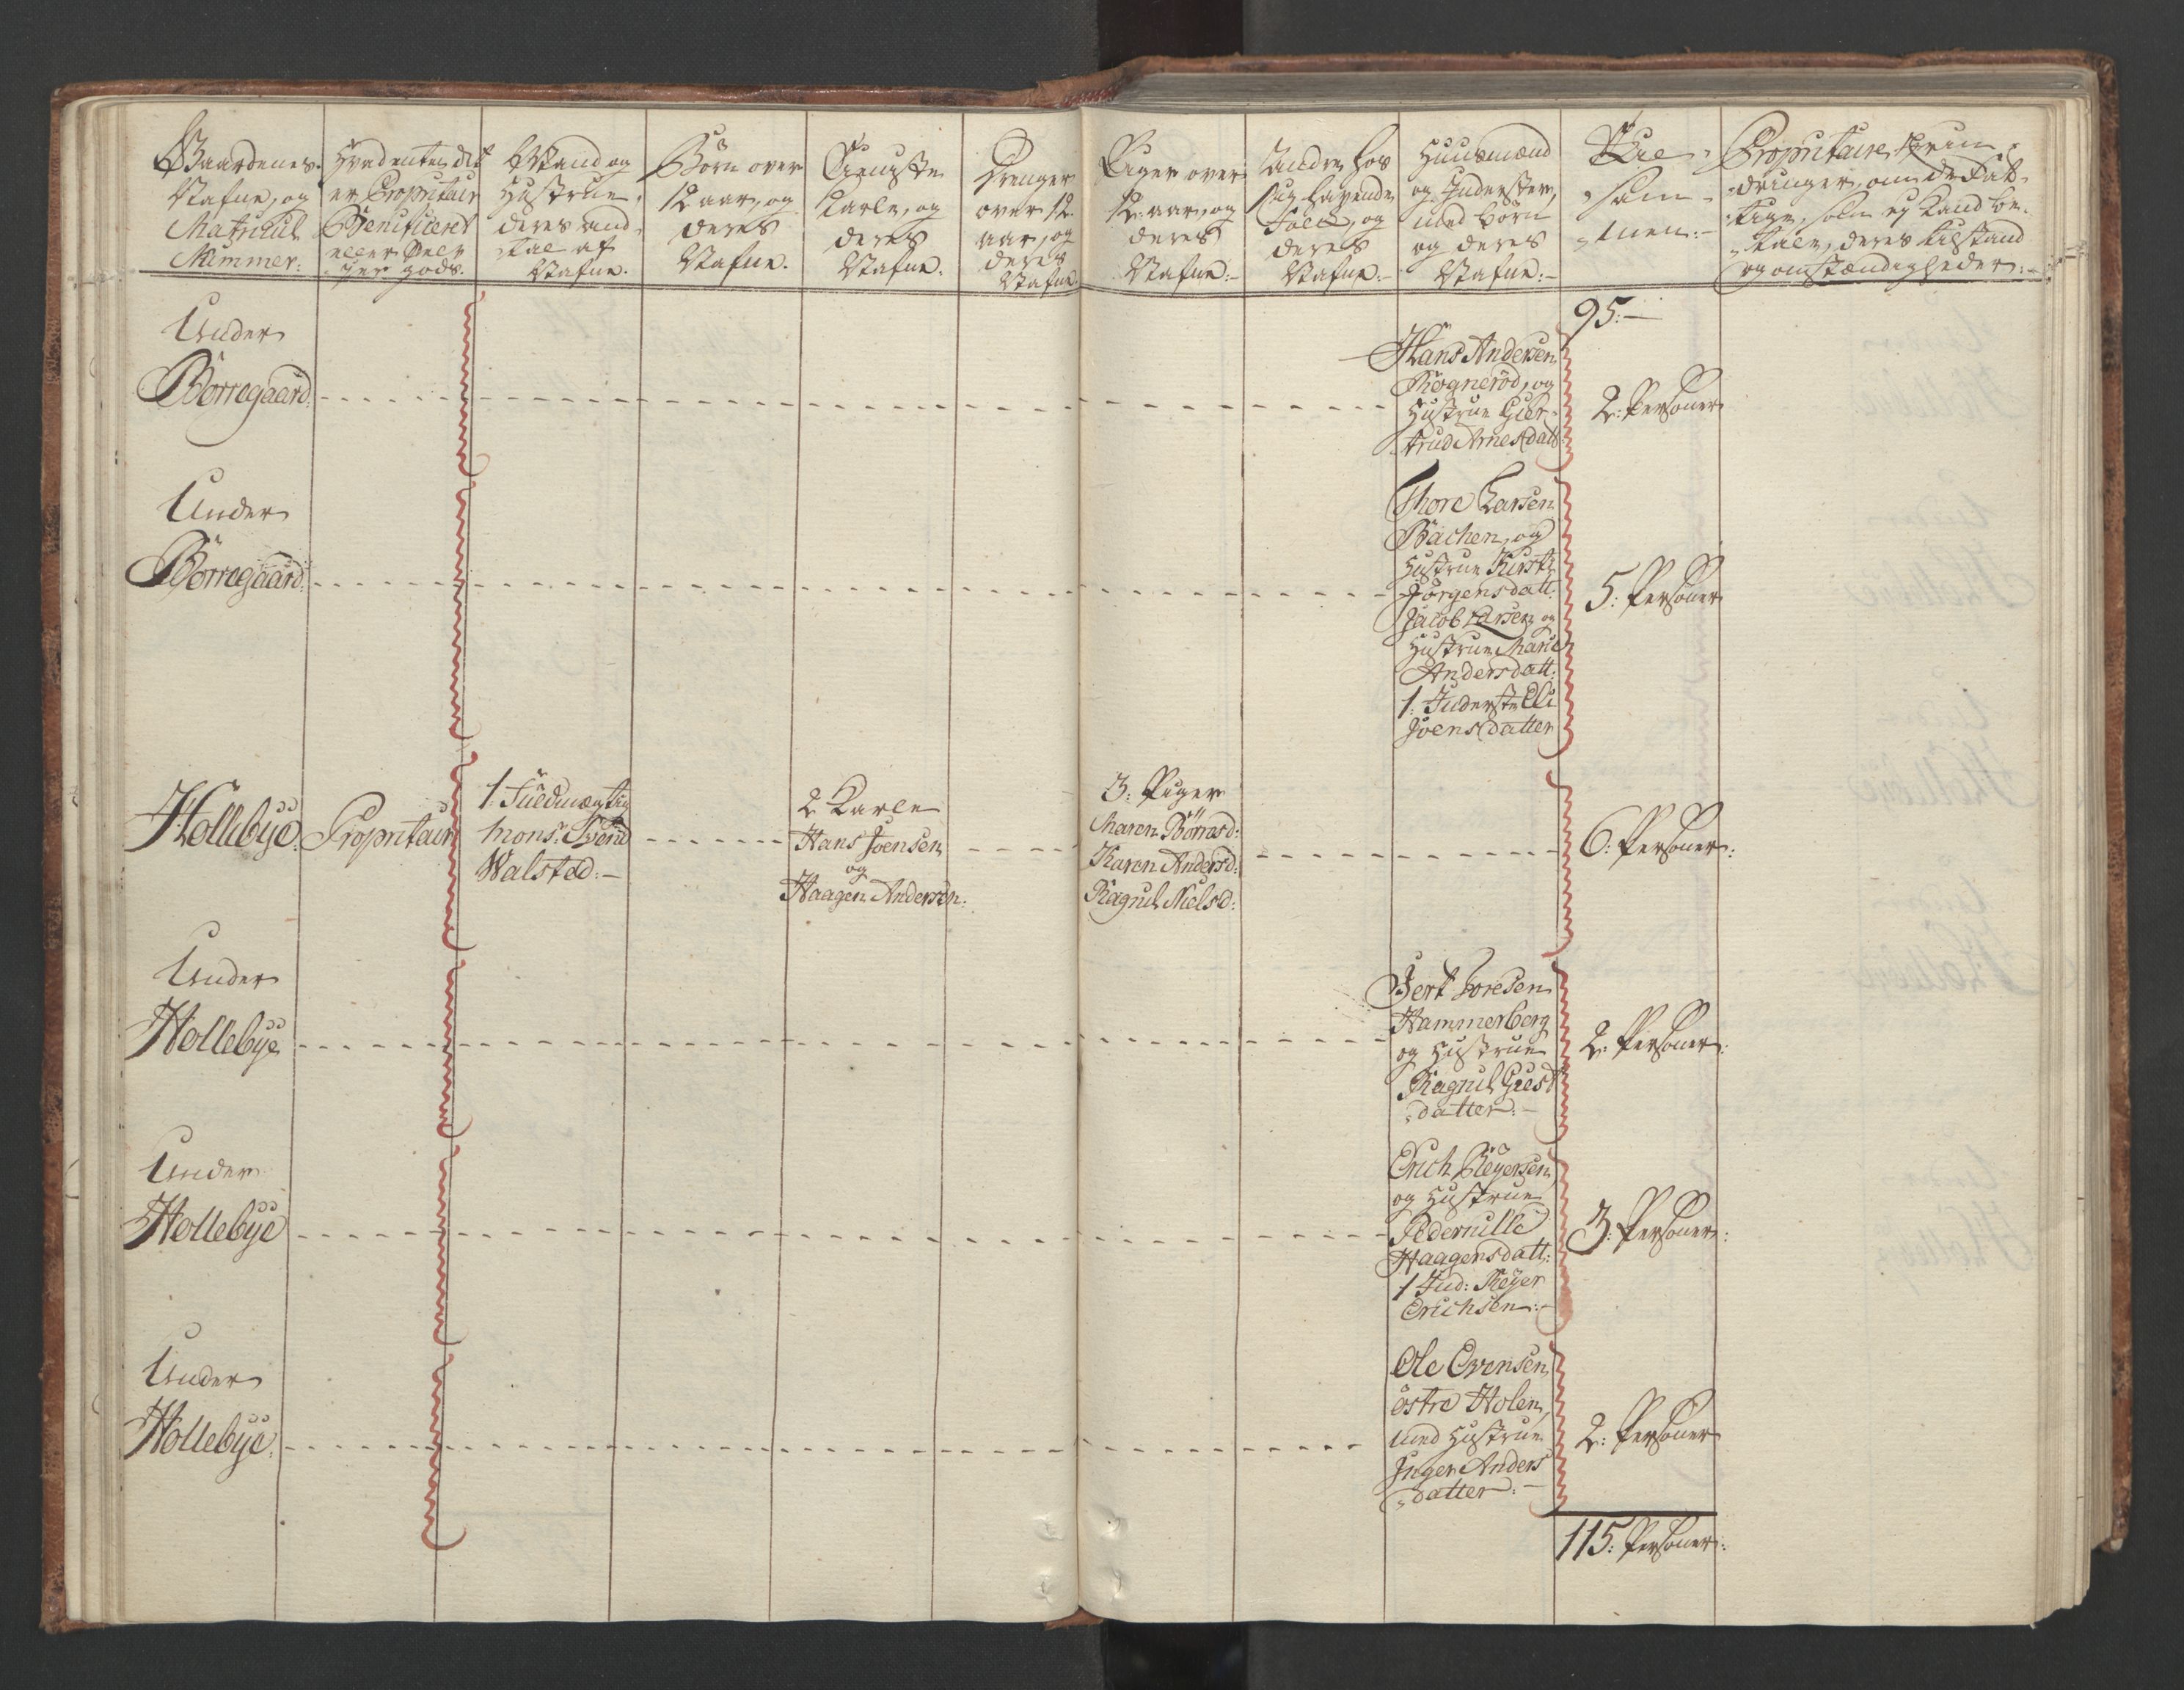 Gaardenes
Nafne, og
Matricul
Nummer:
Hvadenten det
er Propritair
Beneficeret
eller Selv
Eyer gods.
Mand og
Hustrue,
deres and-
tal af
Nafne.
Börn over
12 aar, og
deres
Nafne.
Tieniste
Karle, og
deres
Nafne.
Drenger
over 12
aar, og
deres
Nafne
Piger over
12. aar, og
deres
Nafne:-
Andre hos
sig havende
Folck, og
deres
Nafne:-
Huusmænd
og Inderster,
med börn
og deres
Nafne:-
Til-
sam-
men:-
Propritairs Erin-
dringer, om de Fat-
tige, som ey kand be-
tale, deres tilstand
og omstændigheder:-
95:-
Under
Borregaard
Hans Andersen
Rognerød, og
Hustrue Giær-
trud Arnesdatt:
2: Personer
Under
Borregaard:
Thore Larsen
Bachen, og
Hustrue Kirsti
Jörgensdatt:
Jacob Larsen og
Hustrue Marie
Andersdatt:
1: Inderste Eli
Joensdatter
5: Personer
Hollebye:
Propritair
1: Fuldmægtig
Mons:r Svend
Walsted:-
2 Karle
Hans Joensen
og
Haagen Andersen:
3: Piger
Maren Börresd:
Karen Andersd:
Ragnil Nielsd:
6: Personer:
Under
Hollebye
Gert Joresen
Hammerborg
og Hustrue
Ragnil Giest
datter:-
2: Personer:
Under
Hollebye
Erich Reyersen
og Hustrue
Pedernille
Haagensdatt:
1 Ind: Reyer
Erichsen:-
3: Personer:
Under
Hollebye:
Ole Evensen
östre Holen,
med Hustrue
Inger Anders
datter:-
2: Personer
115: Personer: